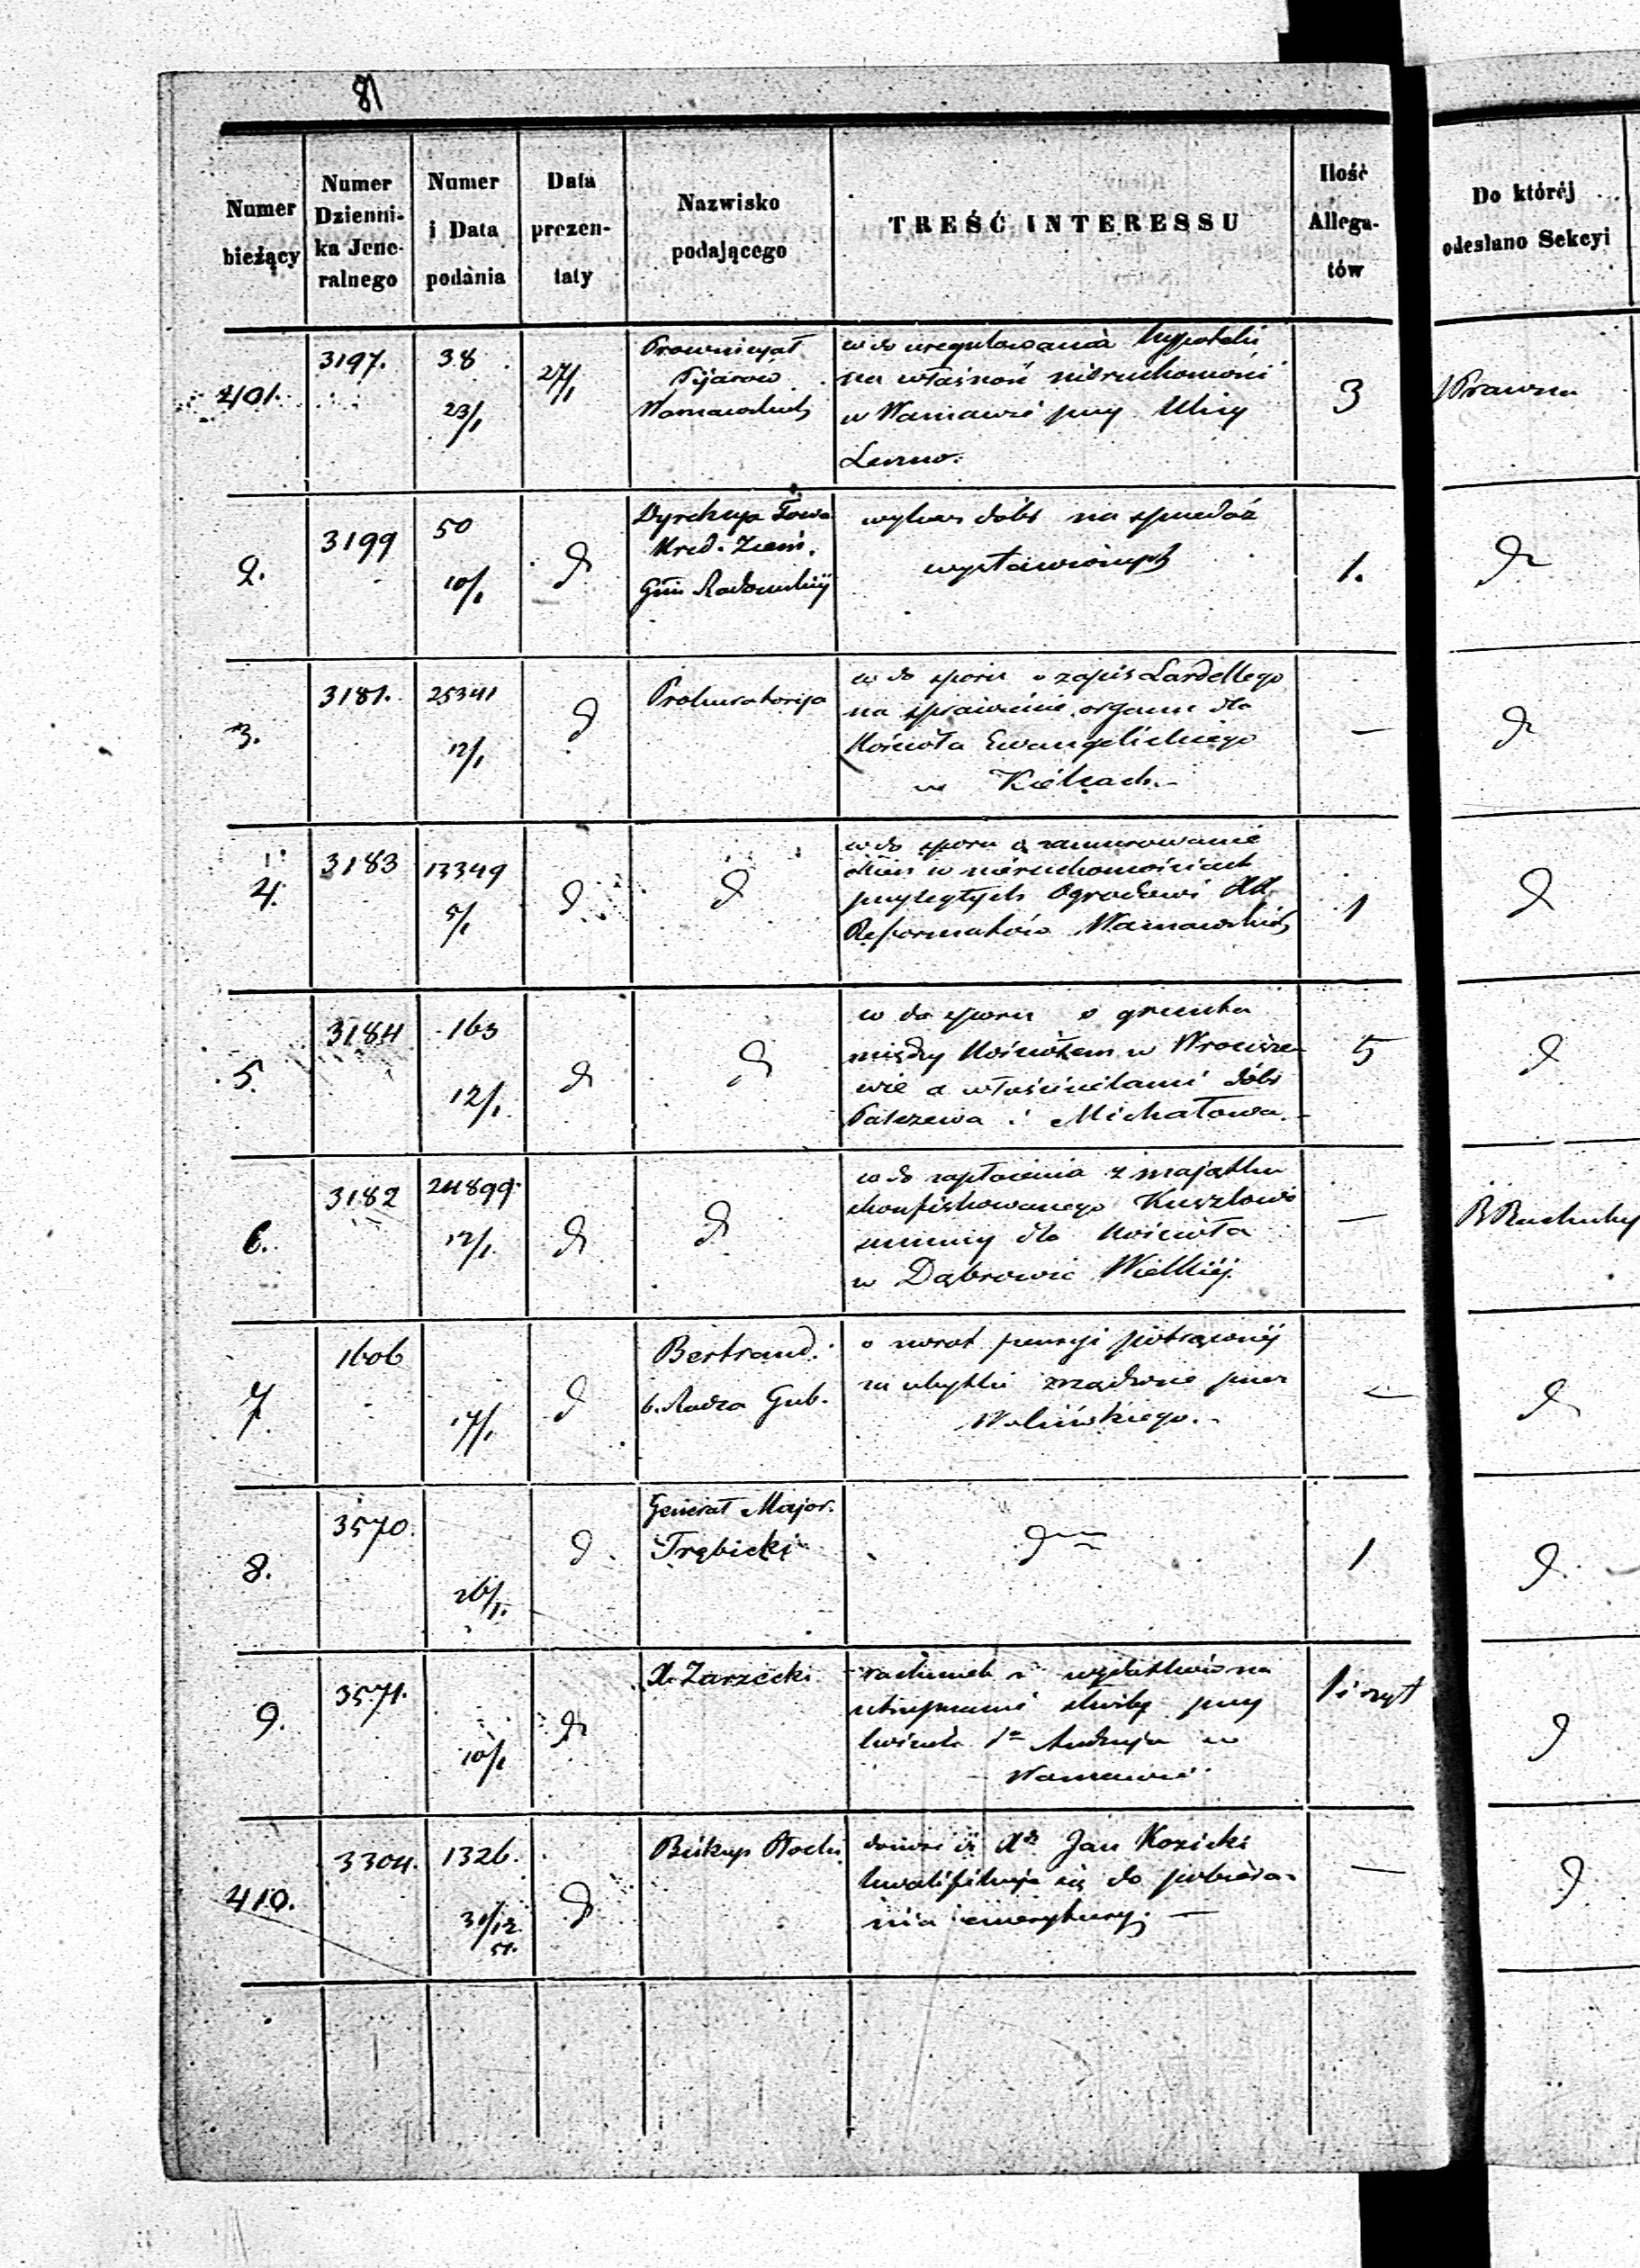 81
Numer bieżący
Numer Dzienni- ka Jene- ralnego
Numer i Data podania
Data prezen- taty
Nazwisko podającego
TREŚĆ INTERESSU
Ilość Allega- tów
Do któréj odesłano Sekcyi
401. 3197. 38 23/1 27/1
Prowincyał
Pijarów
Warszawskich
w do uregulowania hypoteki
na własność nieruchomości
w Warszawie przy Ulicy
Leszno.
3
Prawna
2. 3199 50 10/1 d
Dyrekcya Towa
Kred. Ziems.
Gūn Radomskiéj
wykaz dóbr na sprzedaż
wystawionych
1. d
3. 3181. 25341 12/1 d
Prokuratorija
w do sporu o zapis Lardellego
na sprawienie organu dla
Kościoła Ewangelickiego
w Kielcach.-
— d
4. 3183 13349 5/1 d
d
w do sporu o zamurowanie
okien w nieruchomościach
przyległych Ogrodowi XX.
Reformatów Warszawskich
1 d
5. 3184 163 12/1. d
d
w do sporu o grunta
między Kościołem w Wrocisze-
wie a właścicielami dóbr
Palczewa i Michałowa.-
5 d
6. 3182 24899. 12/1. d
d
w do zapłacenia z majątku
skonfiskowanego Kuszlowi
summy dla Kościoła
w Dąbrowie Wielkiéj.
— R Rachuby
7. 1606 17/1. d
Bertrand.
b. Radca Gub.
o zwrot pensyi potrąconéj
za ubytki zrządzone przez
Wolińskiego.-
— d
8. 3570. 26/1. d
Generał Major.
Trębicki
d
1 d
9. 3571. 10/1 d
X. Zarzecki
rachunek z wydatków na
utrzymanie służby przy
kościele Sgo Andrzeja w
Warszawie
1 i szyt d
410. 3304. 1326. 31/12 51. d
Biskup Płocki
donosi iż Xdz Jan Kozicki
kwalifikuje się do pobiera-
nia emerytury. —
— d